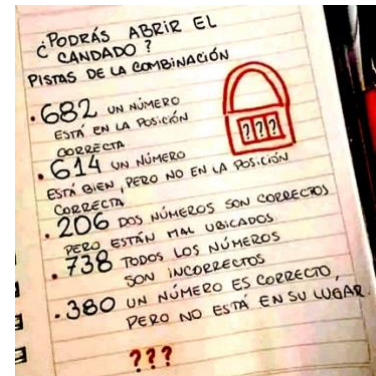 ¿PODRÁS ABRIR EL
CANDADO?
PISTAS DE LA COMBINACIÓN
.682 UN NÚMERO
ESTÁ EN LA POSICIÓN
CORRECTA
???
.614 UN NÚMERO
ESTÁ BIEN, PERO NO EN LA POSICIÓN
CORRECTA
.206 DOS NÚMEROS SON CORRECTOS
PERO ESTÁN MAL UBICADOS
.738 TODOS LOS NÚMEROS
SON INCORRECTOS
.380 UN NÚMERO ES CORRECTO,
PERO NO ESTÁ EN SU LUGAR.
???